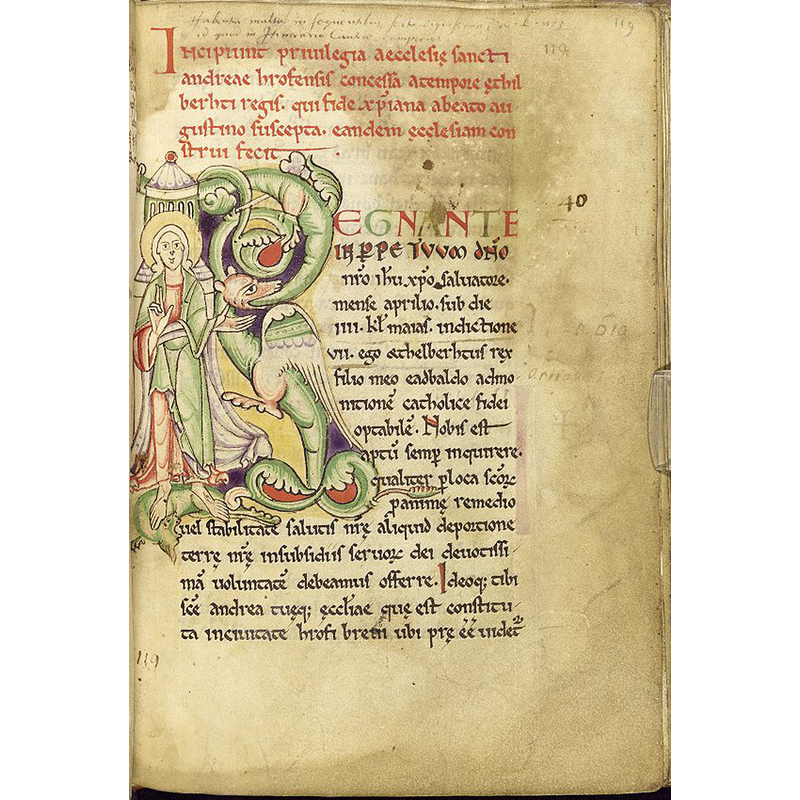 119
114
Incipiunt privilegia aecclesię sancti
andreae hrofensis concessa a tempore ęthil
berhti regis. qui fide xp̄iana a beato au
gustino suscepta. eandem ęcclesiam con
strui fecit.
40
REGNANTE
IN P̱PETVVM dño
nr̄o ih̄u xp̄o salvatore.
mense aprilio. sub die
IIII. kl̄ maias. indictione
VII. ego æthelberhtus rex
filio meo eadbaldo admo
nitionē catholice fidei
optabilē. Nobis est
aptū semp̱ inquirere.
qualiter p̱ loca scōꝝ
p̱ animę remedio
uel stabilitate salutis nr̄ę aliquid de portione
terrę nr̄ę in subsidiis seruoꝝ dei deuotissi-
mā uoluntatē debeamus offerre. Ideoq; tibi
sc̄e andrea tuęq; ęccl̄iae quę est constitu-
ta in ciuitate hrofi breui ubi pręē͞e uidet᷑
119